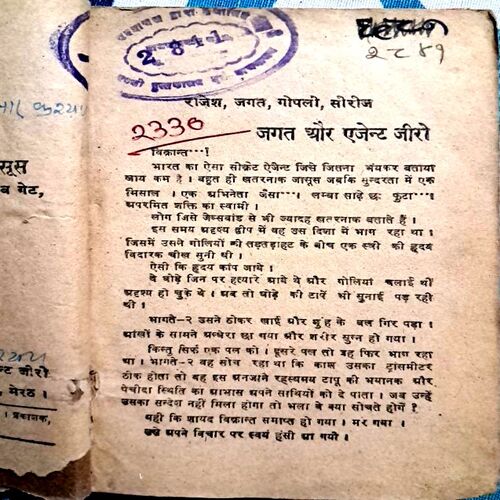 २८४१
राजेश, जगत, गोपली, सीरीज
2336
जगत और एजेन्ट जीरो
विक्रान्त....!
भारत का ऐसा सीक्रेट ऐजेन्ट जिसे जितना भयंकर बताया
जाय कम है। बहुत ही खतरनाक जासूस जबकि सुन्दरता में एक
मिसाल । एक अभिनेता जैसा....। लम्बा साढ़े छः फुटा....।
अपरमित शक्ति का स्वामी।
लोग जिसे जेम्सबांड से भी ज्यादह खतरनाक बताते हैं।
इस समय अदृश्य द्वीप में वह उस दिशा में भाग रहा था।
जिसमें उसने गोलियों की तड़तड़ाहट के बीच एक स्त्री की हृदय
विदारक चीख सुनी थी।
ऐसी कि हृदय कांप जाये।
वे घोड़े जिन पर हत्यारे आये थे और गोलियां चलाई थीं
अदृश्य हो चुके थे। अब तो घोड़े की टापें भी सुनाई पड़ रही
थी।
भागते-२ उसने ठोकर खाई और मुंह के बल गिर पड़ा।
आंखों के सामने अन्धेरा छा गया और शरीर सुन्न हो गया।
किन्तु सिर्फ एक पल को। दूसरे पल तो वह फिर भाग रहा
था। भागते-२ वह सोच रहा था कि काश उसका ट्रांसमीटर
ठीक होता तो वह इस अनजाने रहस्यमय टापू की भयानक और
पेचीदा स्थिति का आभास अपने साथियों को दे पाता। जब उन्हें
उसका सन्देश नहीं मिला होगा तो भला वे क्या सोचते होगें ?
यही कि शायद विक्रान्त समाप्त हो गया। मर गया।
उसे अपने विचार पर स्वयं हंसी आ गयी।
सूस
व गेट,
न्ट जीरो
मेरठ।
प्रकाशक,